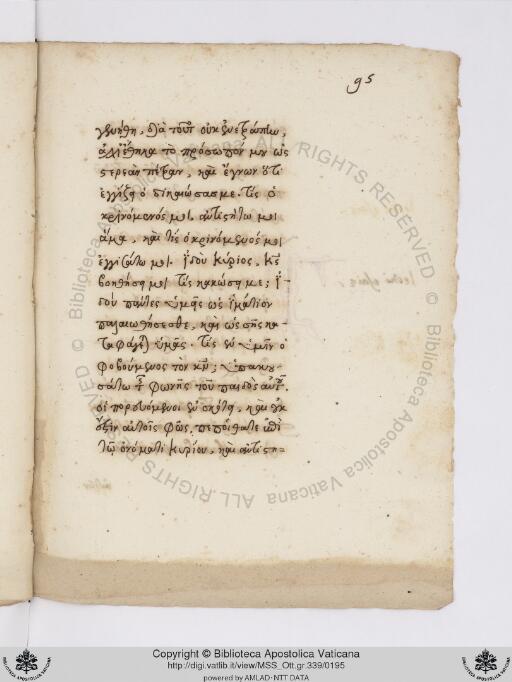 95
γενήθη, διὰ τοῦτο οὐκ ἐνετράπην,
ἀλλ' ἔθηκα τὸ πρόσωπόν μου ὡς
στερεὰν πέτραν, καὶ ἔγνων ὅτι
ἐγγίζει ὁ δικαιώσας με. τίς ὁ
κρινόμενός μοι. ἀντιστήτω μοι
ἅμα, καὶ τίς ὁ κρινόμενός μοι
ἐγγισάτω μοι. ἰδοὺ κύριος, κς
βοηθήσει μοι τίς κακώσει με; ἰ-
δοὺ πάντες ὑμεῖς ὡς ἱμάτιον
παλαιωθήσεσθε, καὶ ὡς σὴς κα-
ταφάγεται ὑμᾶς. τίς ἐν ὑμῖν ὁ
φοβούμενος τὸν κν; ὑπακου-
σάτω τῆς φωνῆς τοῦ παιδὸς αὐτοῦ.
οἱ πορευόμενοι ἐν σκότει, καὶ οὐκ
ἔστιν αὐτοῖς φῶς, πεποίθατε ἐπὶ
τῷ ὀνόματι κυρίου, καὶ ἀντιστη-
Copyright © Biblioteca Apostolica Vaticana
http://digi.vatlib.it/view/MSS_Ott.gr.339/0195
powered by AMLAD-NTT DATA